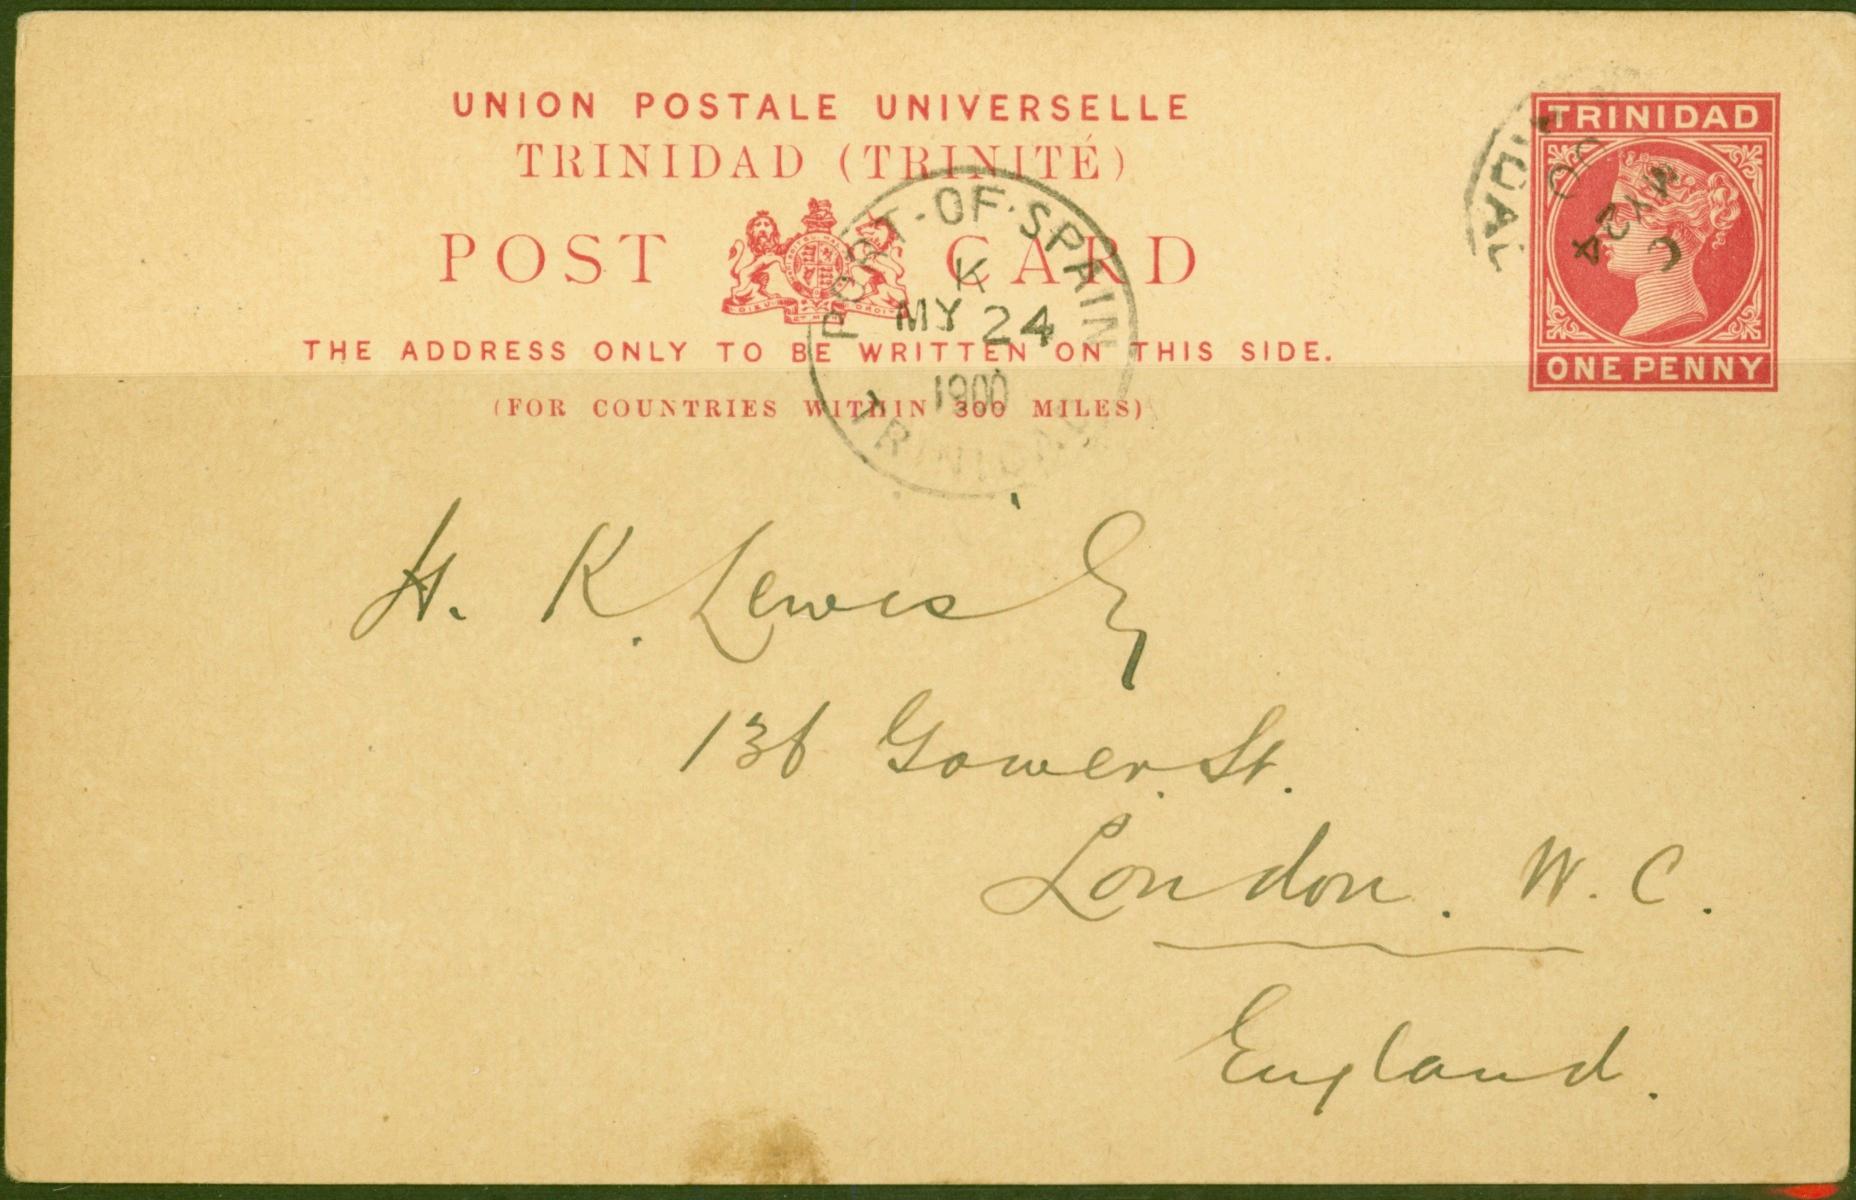 UNION POSTALE UNIVERSELLE
TRINIDAD (TRINITÉ)
POST CARD
THE ADDRESS ONLY TO BE WRITTEN ON THIS SIDE.
(FOR COUNTRIES WITHIN 300 MILES)
TRINIDAD
ONE PENNY
PORT-OF-SPAIN
K
MY 24
1900
TRINIDAD
C
MY 24
00
H. K. Lewis Esq
136 Gower St.
London. W. C.
England.